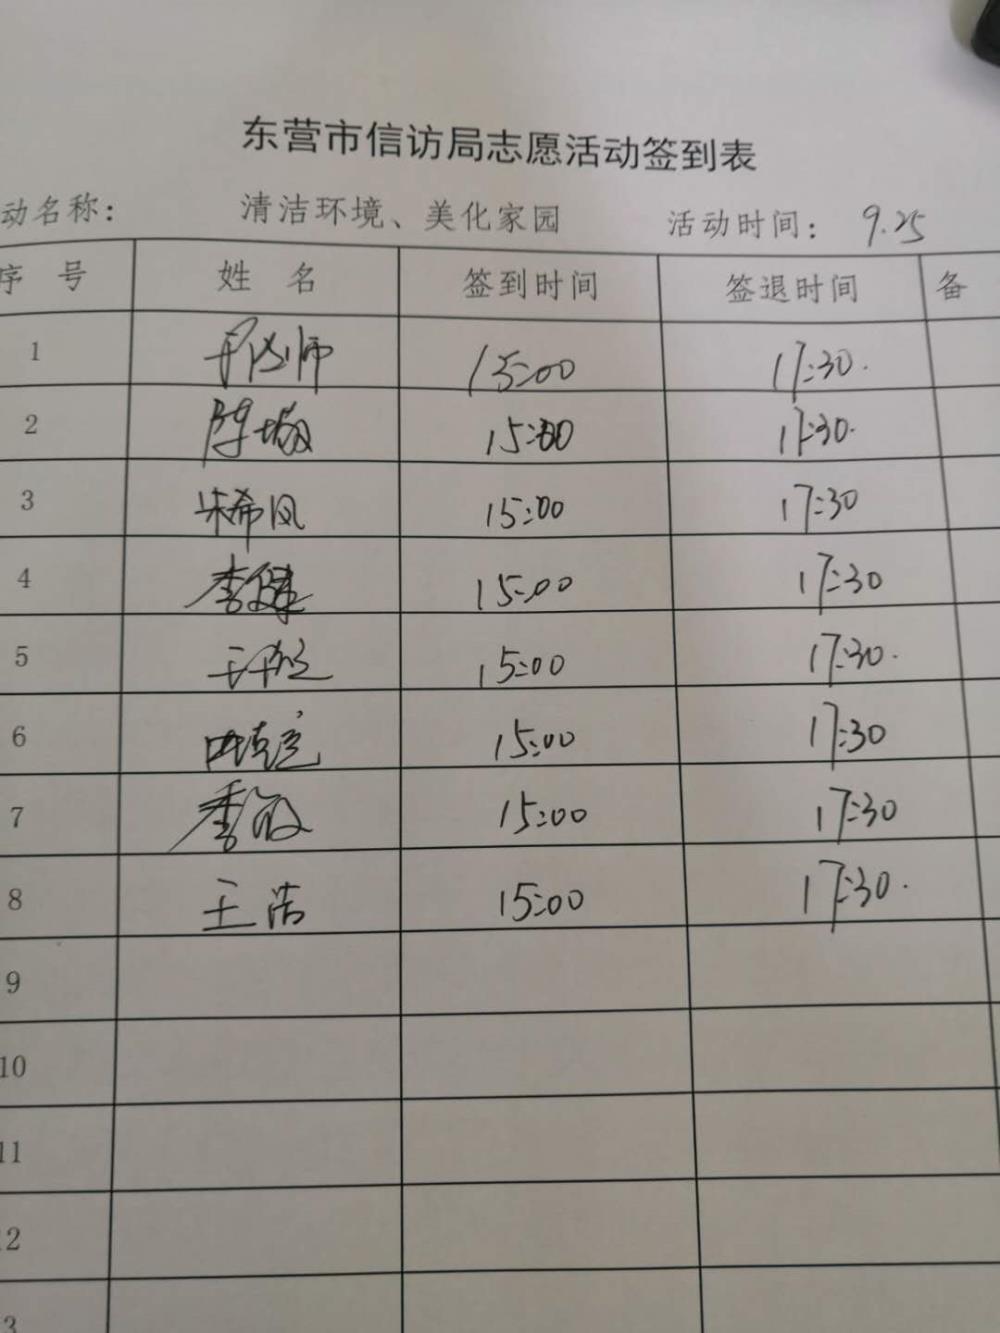 东营市信访局志愿活动签到表
动名称： 清洁环境、美化家园 活动时间： 9.25
序 号 姓 名 签到时间 签退时间 备
1 15:00 17:30.
2 15:00 17:30.
3 朱希凤 15:00 17:30
4 李健 15:00 17:30
5 15:00 17:30.
6 15:00 17:30
7 李敏 15:00 17:30
8 王浩 15:00 17:30.
9
10
11
12
13